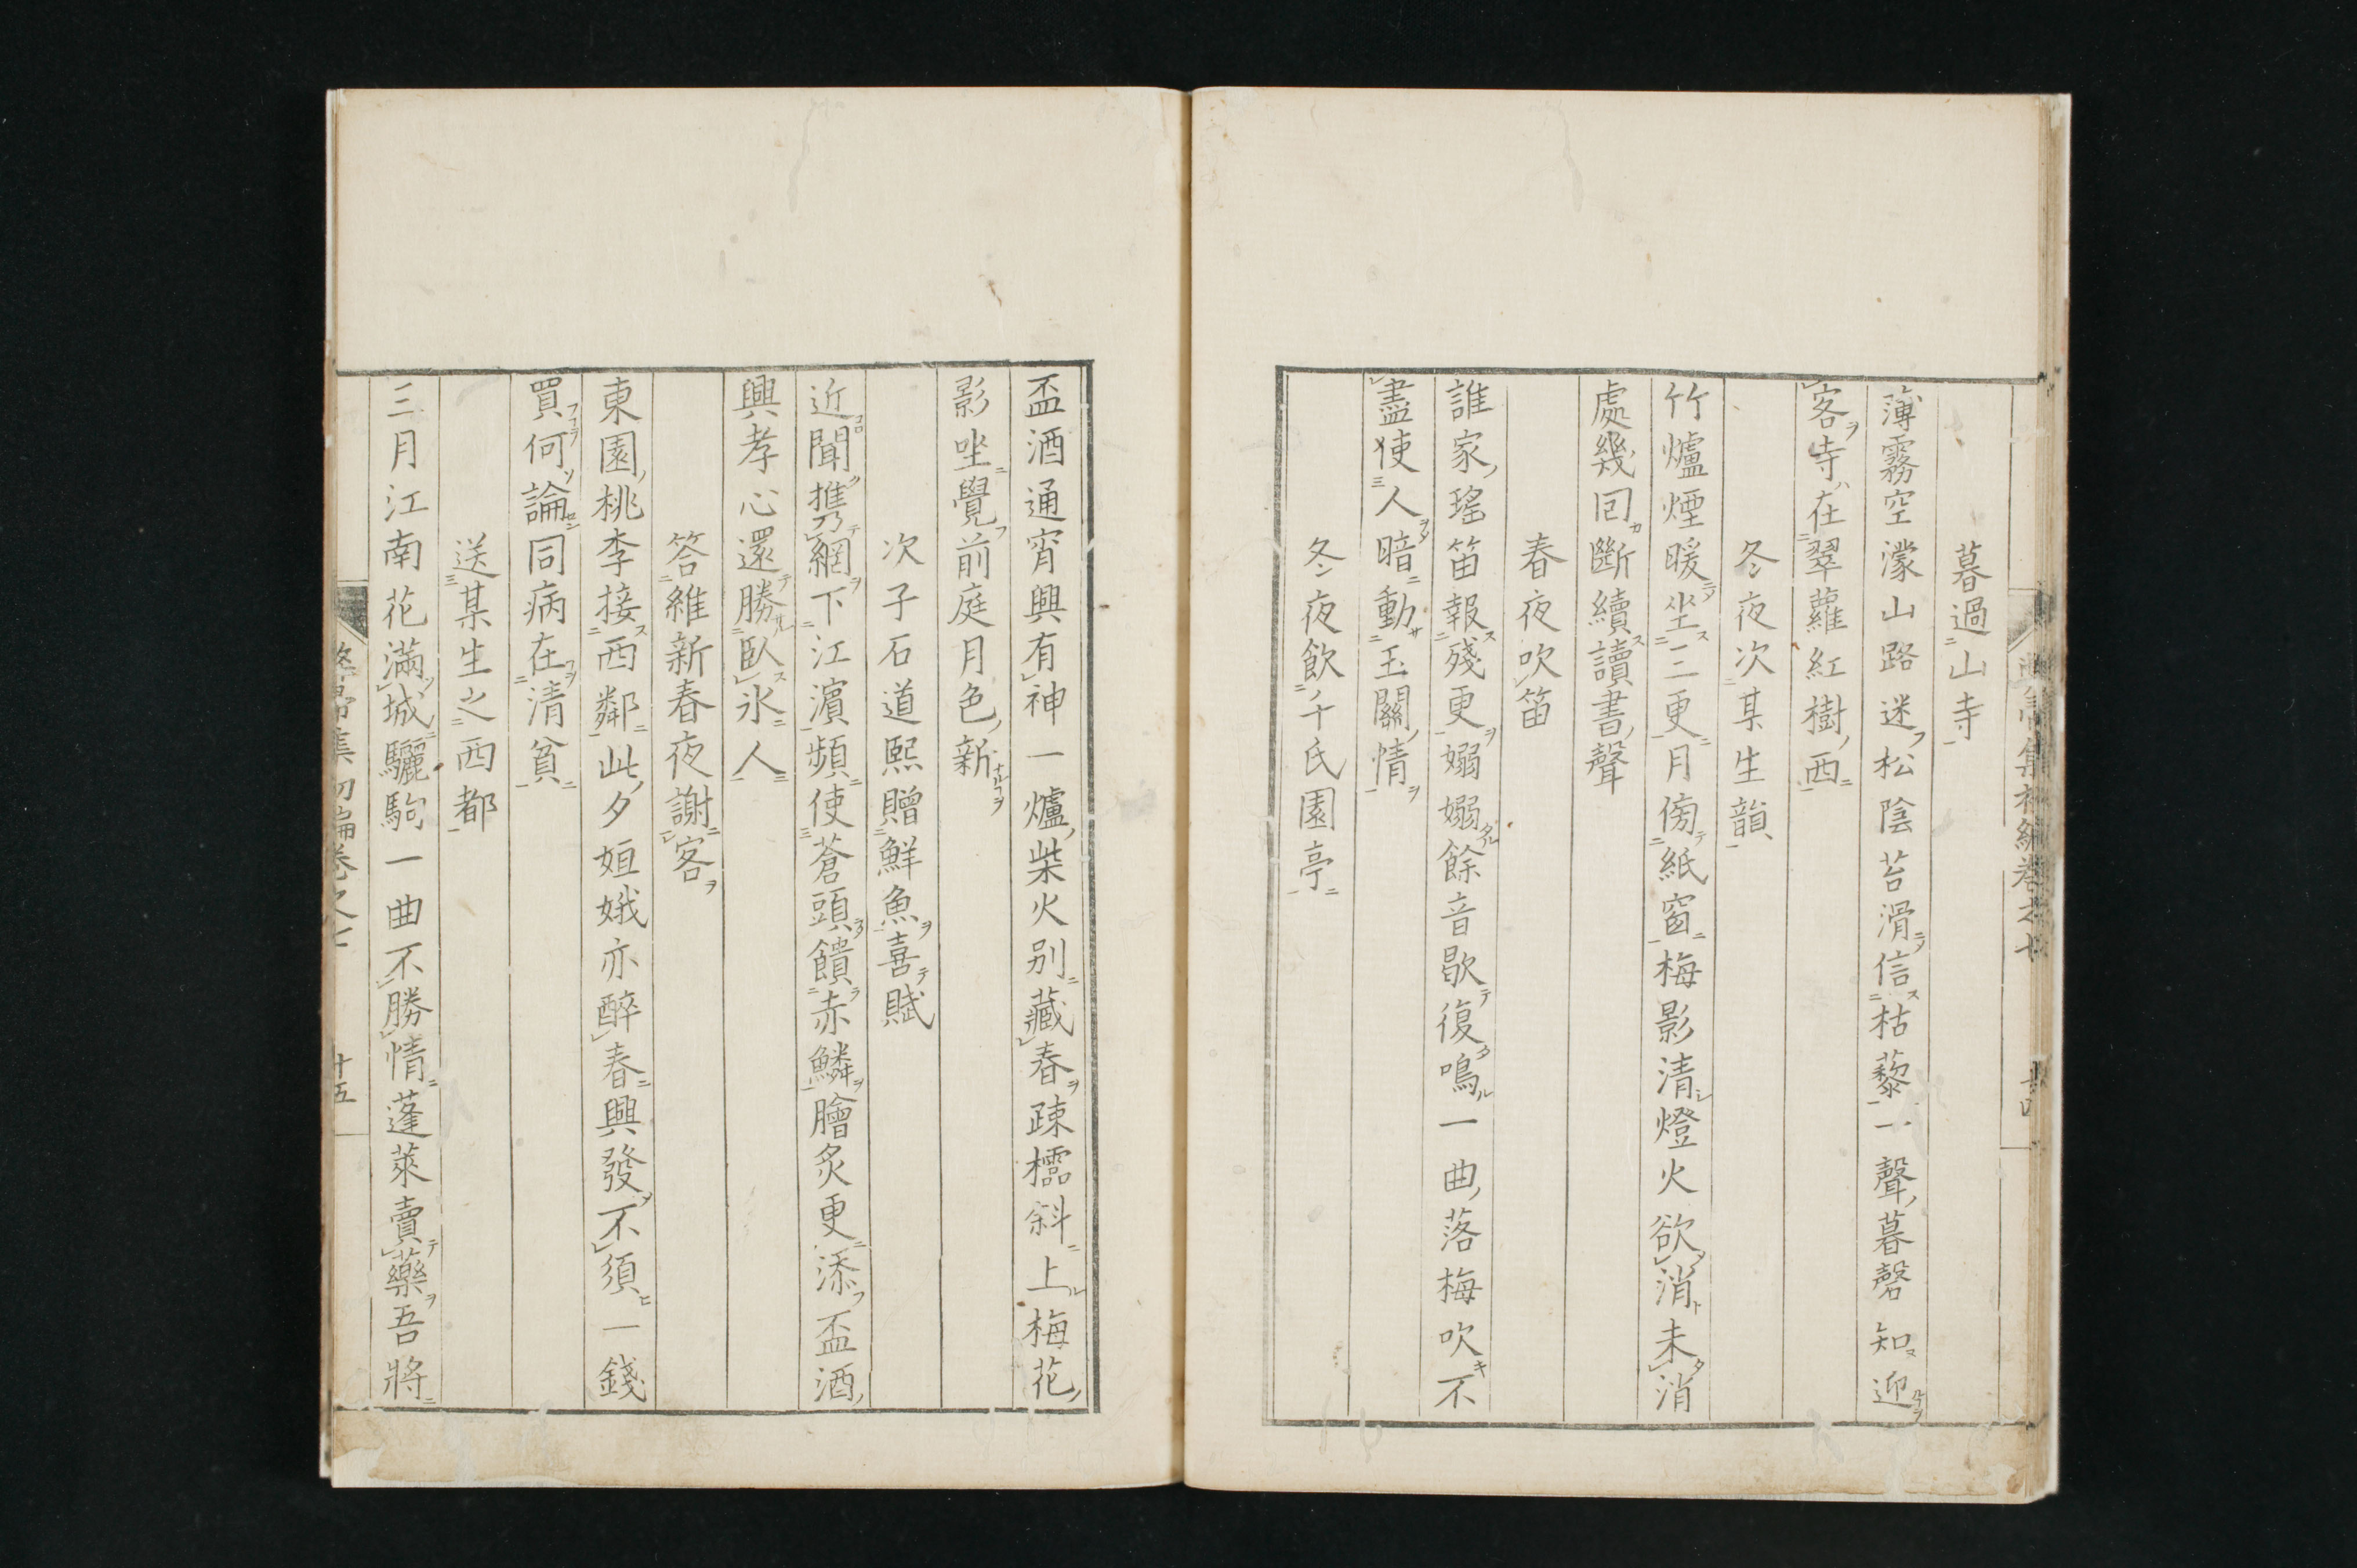 暮過山寺
薄霧空濛山路迷松陰苔滑信枯藜一聲暮磬知迎
客寺在翠蘿紅樹西
冬夜次某生韻
竹爐煙暖坐三更月傍紙窗梅影清燈火欲消未消
處幾回斷續讀書聲
春夜吹笛
誰家瑤笛報殘更嫋嫋餘音歇復鳴一曲落梅吹不
盡使人暗動玉關情
冬夜飲于氏園亭
盃酒通宵興有神一爐柴火別藏春疎櫺斜上梅花
影坐覺前庭月色新
次子石道熙贈鮮魚喜賦
近聞携網下江濱頻使蒼頭饋赤鱗膾炙更添盃酒
興孝心還勝臥氷人
答維新春夜謝客
東園桃李接西鄰此夕姮娥亦醉春興發不須一錢
買何論同病在清貧
送某生之西都
三月江南花滿城驪駒一曲不勝情蓬萊賣藥吾將
集初編卷之七
十五